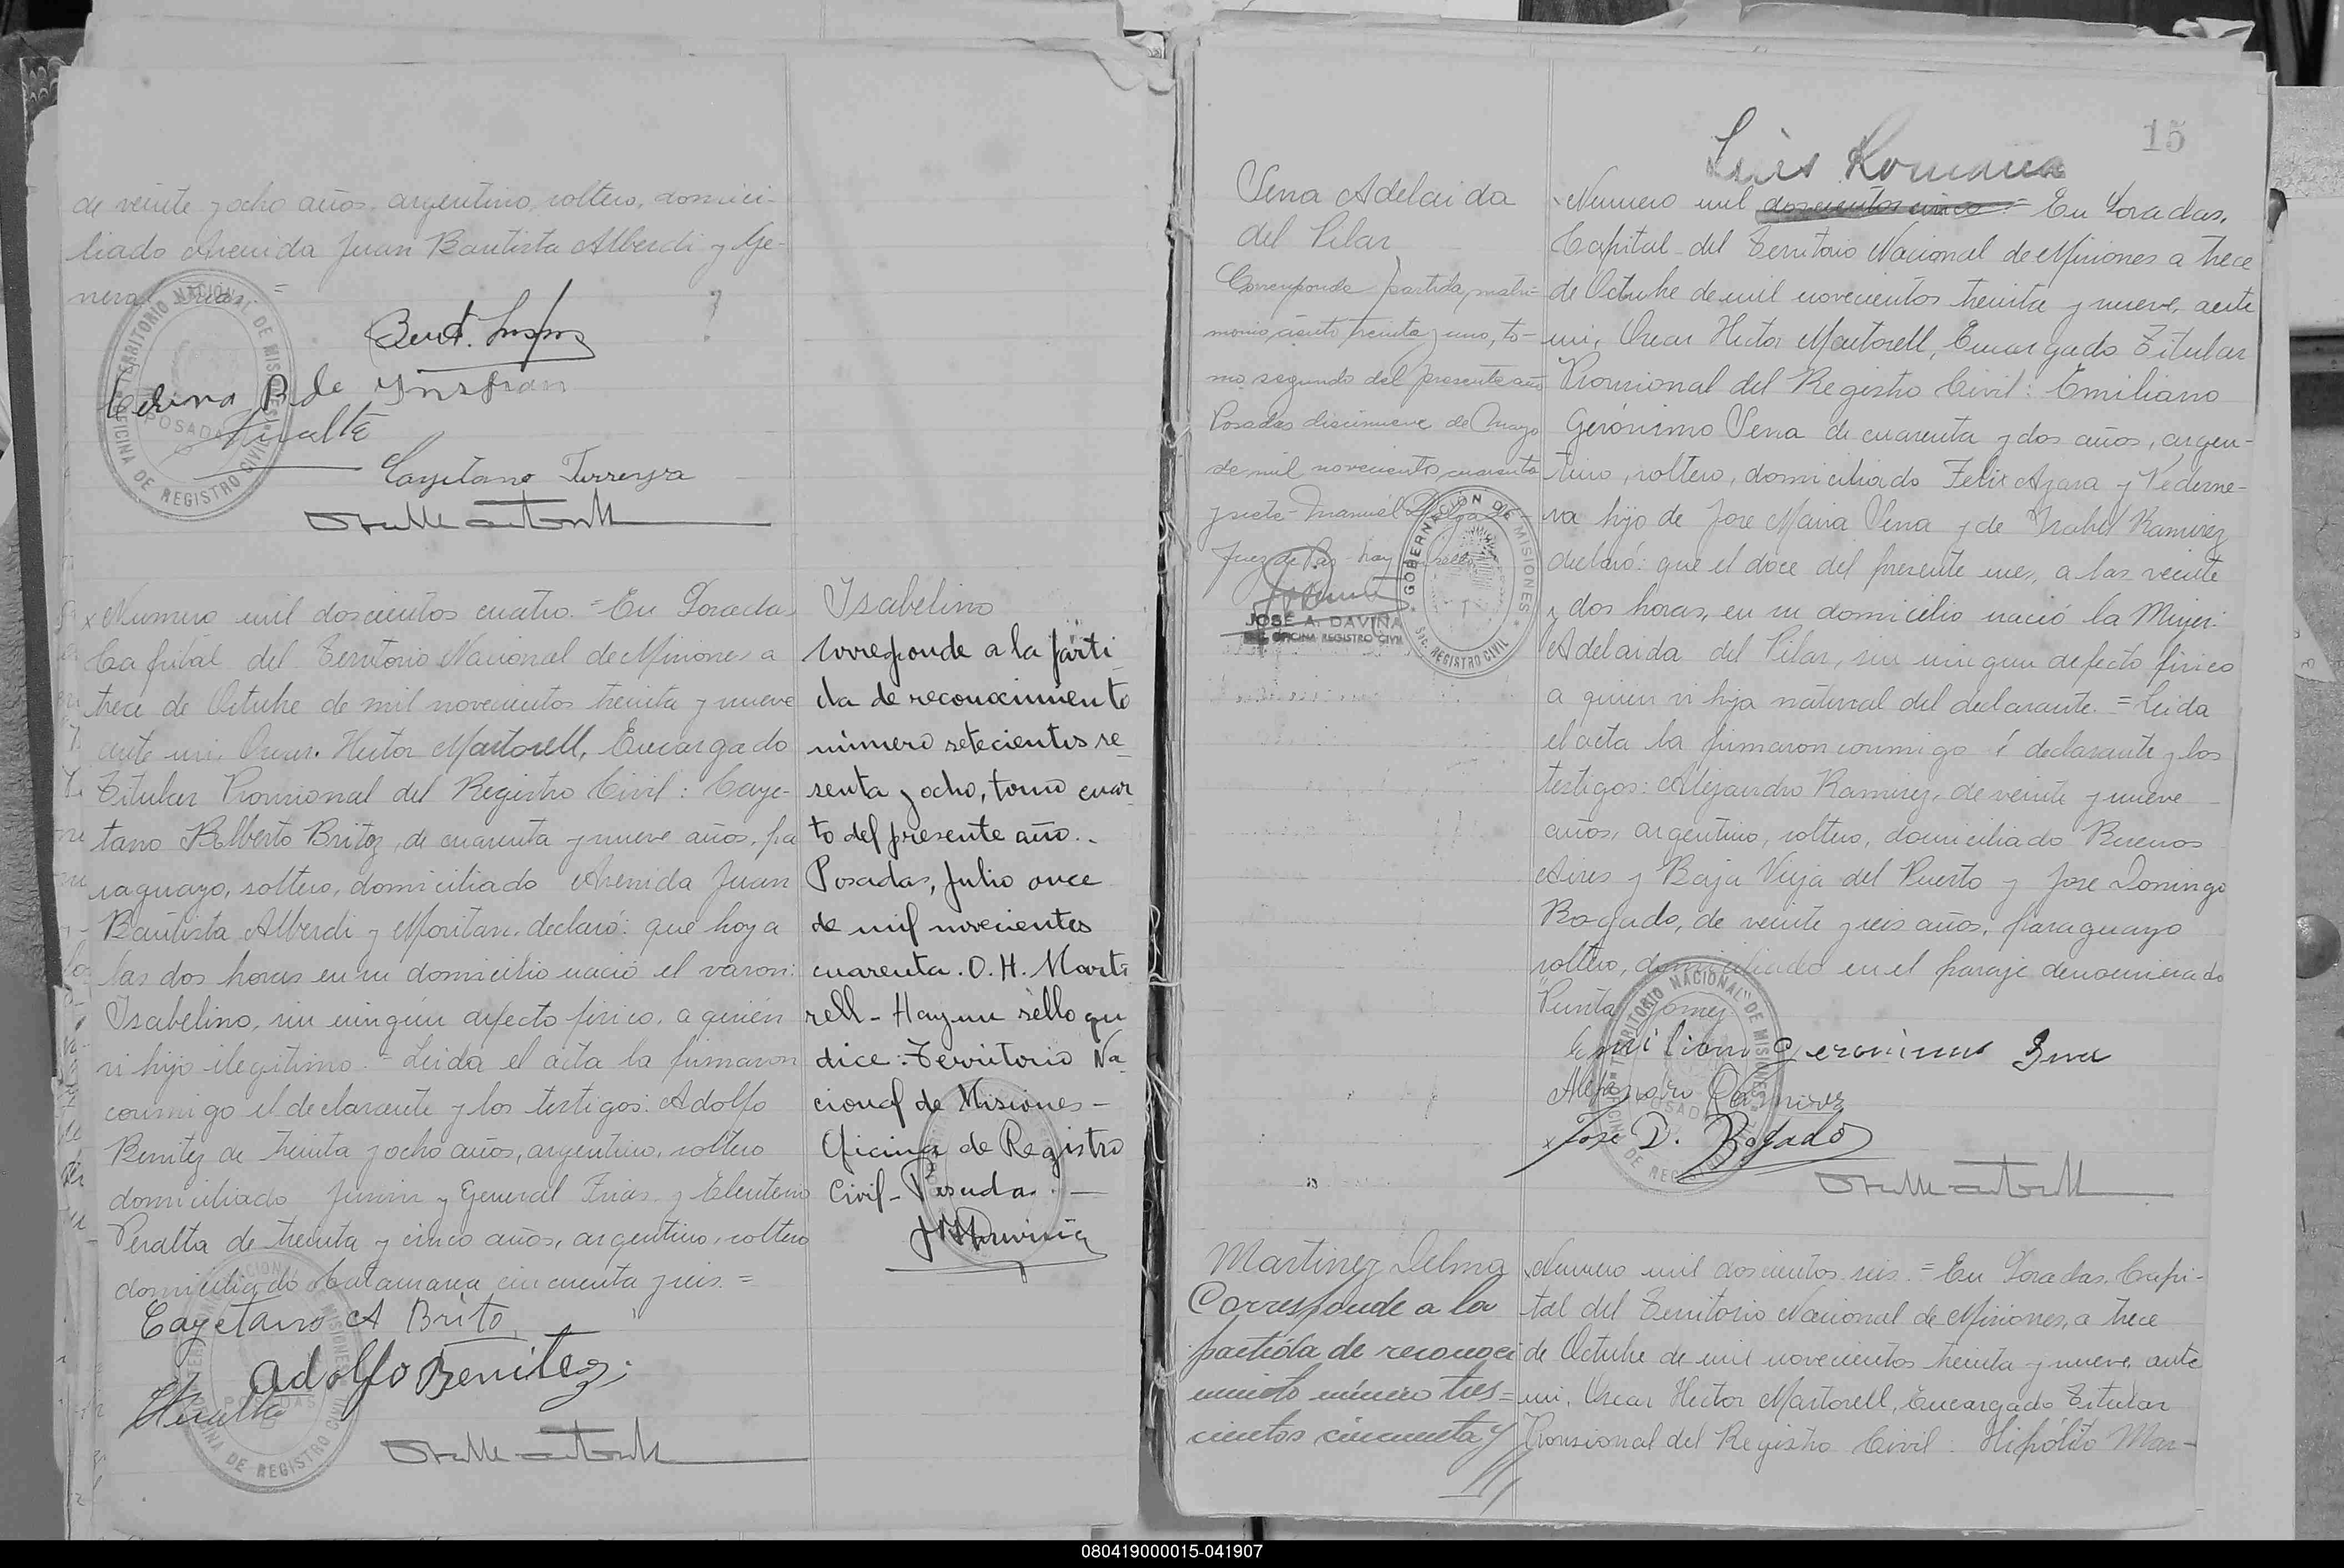 de veinte y ocho años, argentino, soltero, domici-
liado Avenida Juan Bautista Alberdi y Ge-
neral Frias. =
TERRITORIO NACIONAL DE MISIONES
OFICINA DE REGISTRO CIVIL
POSADAS
P. de Ynsfran
Peralta
Cayetano Ferreyra
x Numero mil doscientos cuatro. = En Posadas
Capital del Territorio Nacional de Misiones a
trece de Octubre de mil novecientos treinta y nueve
ante mi, Oscar Hector Martorell, Encargado
Titular Provisional del Registro Civil: Caye-
tano Alberto Britez, de cuarenta y nueve años, pa
raguayo, soltero, domiciliado Avenida Juan
Bautista Alberdi y declaró: que hoy a
las dos horas en su domicilio nació el varon:
Isabelino, sin ningún defecto fisico, a quién
es hijo ilegitimo. = Leida el acta la firmaron
conmigo el declarante y los testigos: Adolfo
Benitez de treinta y ocho años, argentino, soltero
domiciliado Junin y General Frias y Eleuterio
Peralta de treinta y cinco años, argentino, soltero
domiciliado Catamarca cincuenta y seis. =
Cayetano A Brito
Adolfo Benitez
Peralta
TERRITORIO NACIONAL DE MISIONES
OFICINA DE REGISTRO CIVIL
POSADAS
Isabelino
Corresponde a la parti
da de reconocimiento
número setecientos se
senta y ocho, tomo cuar
to del presente año.-
Posadas, Julio once
de mil novecientos
cuarenta. O. H. Marto
rell - Hay un sello que
dice: Territorio Na
cional de Misiones -
Oficina de Registro
Civil - Posadas. -
15
Luis Romana
Sena Adelaida
del Pilar
Corresponde partida matri-
monio ciento treinta y uno, to-
mo segundo del presente año
Posadas diecinueve de Mayo
de mil novecientos cuarenta
y siete - Manuel
Juez de Paz - hay un sello
JOSÉ A. DAVIÑA
ENC. OFICINA REGISTRO CIVIL
GOBERNACIÓN DE MISIONES
SEC. REGISTRO CIVIL
Numero mil doscientos cinco = En Posadas,
Capital del Territorio Nacional de Misiones a trece
de Octubre de mil novecientos treinta y nueve, ante
mi, Oscar Hector Martorell, Encargado Titular
Provisional del Registro Civil: Emiliano
Gerónimo Sena de cuarenta y dos años, argen-
tino, soltero, domiciliado Felix Azara y Pederne-
ra hijo de Jose Maria Sena y de Isabel Ramirez
declaró: que el doce del presente mes, a las veinte
y dos horas, en su domicilio nació la Mujer:
Adelaida del Pilar, sin ningun defecto fisico
a quien es hija natural del declarante. = Leida
el acta la firmaron conmigo el declarante y los
testigos: Alejandro Ramirez, de veinte y nueve
años, argentino, soltero, domiciliado Buenos
Aires y Baja Vieja del Puerto y Jose Domingo
Bogado, de veinte y seis años, paraguayo
soltero, domiciliado en el paraje denominado
"Punta Gomez.
Emiliano Geronimo Sena
Alejandro Ramirez
x Jose D. Bogado
TERRITORIO NACIONAL DE MISIONES
OFICINA DE REGISTRO CIVIL
POSADAS
Martinez Delma
Corresponde a la
partida de reconoci
miento número tres=
cientos cincuenta y
Numero mil doscientos seis. = En Posadas, Capi-
tal del Territorio Nacional de Misiones, a trece
de Octubre de mil novecientos treinta y nueve, ante
mi, Oscar Hector Martorell, Encargado Titular
Provisional del Registro Civil: Hipólito Mar-
080419000015-041907